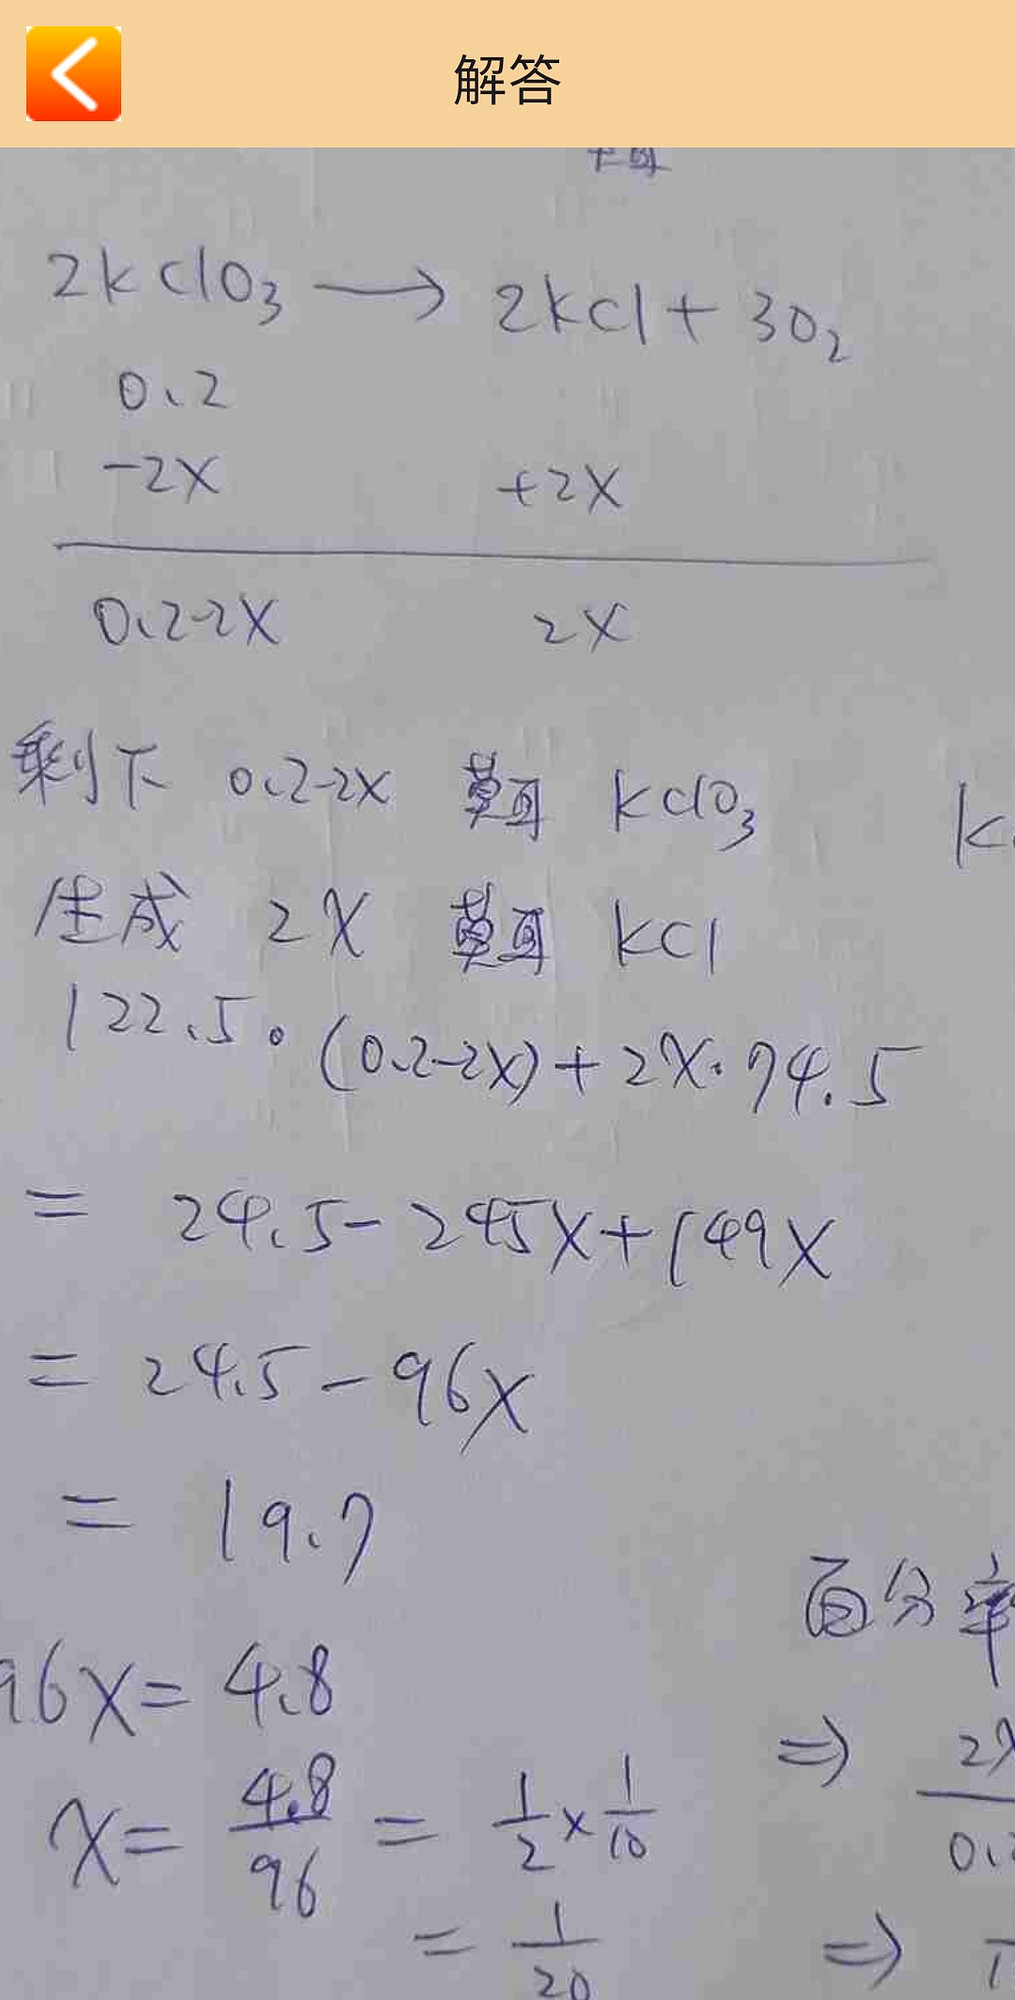 解答
2KClO3 → 2KCl + 3O2
0.2
-2X +2X
0.2-2X 2X
剩下 0.2-2X 莫耳 KClO3
生成 2X 莫耳 KCl
122.5·(0.2-2X)+2X·74.5
= 24.5-245X+149X
= 24.5-96X
= 19.7
百分率
96X=4.8
⇒ 2X
0.2
X= 4.8/96 = 1/2 × 1/10
= 1/20
⇒